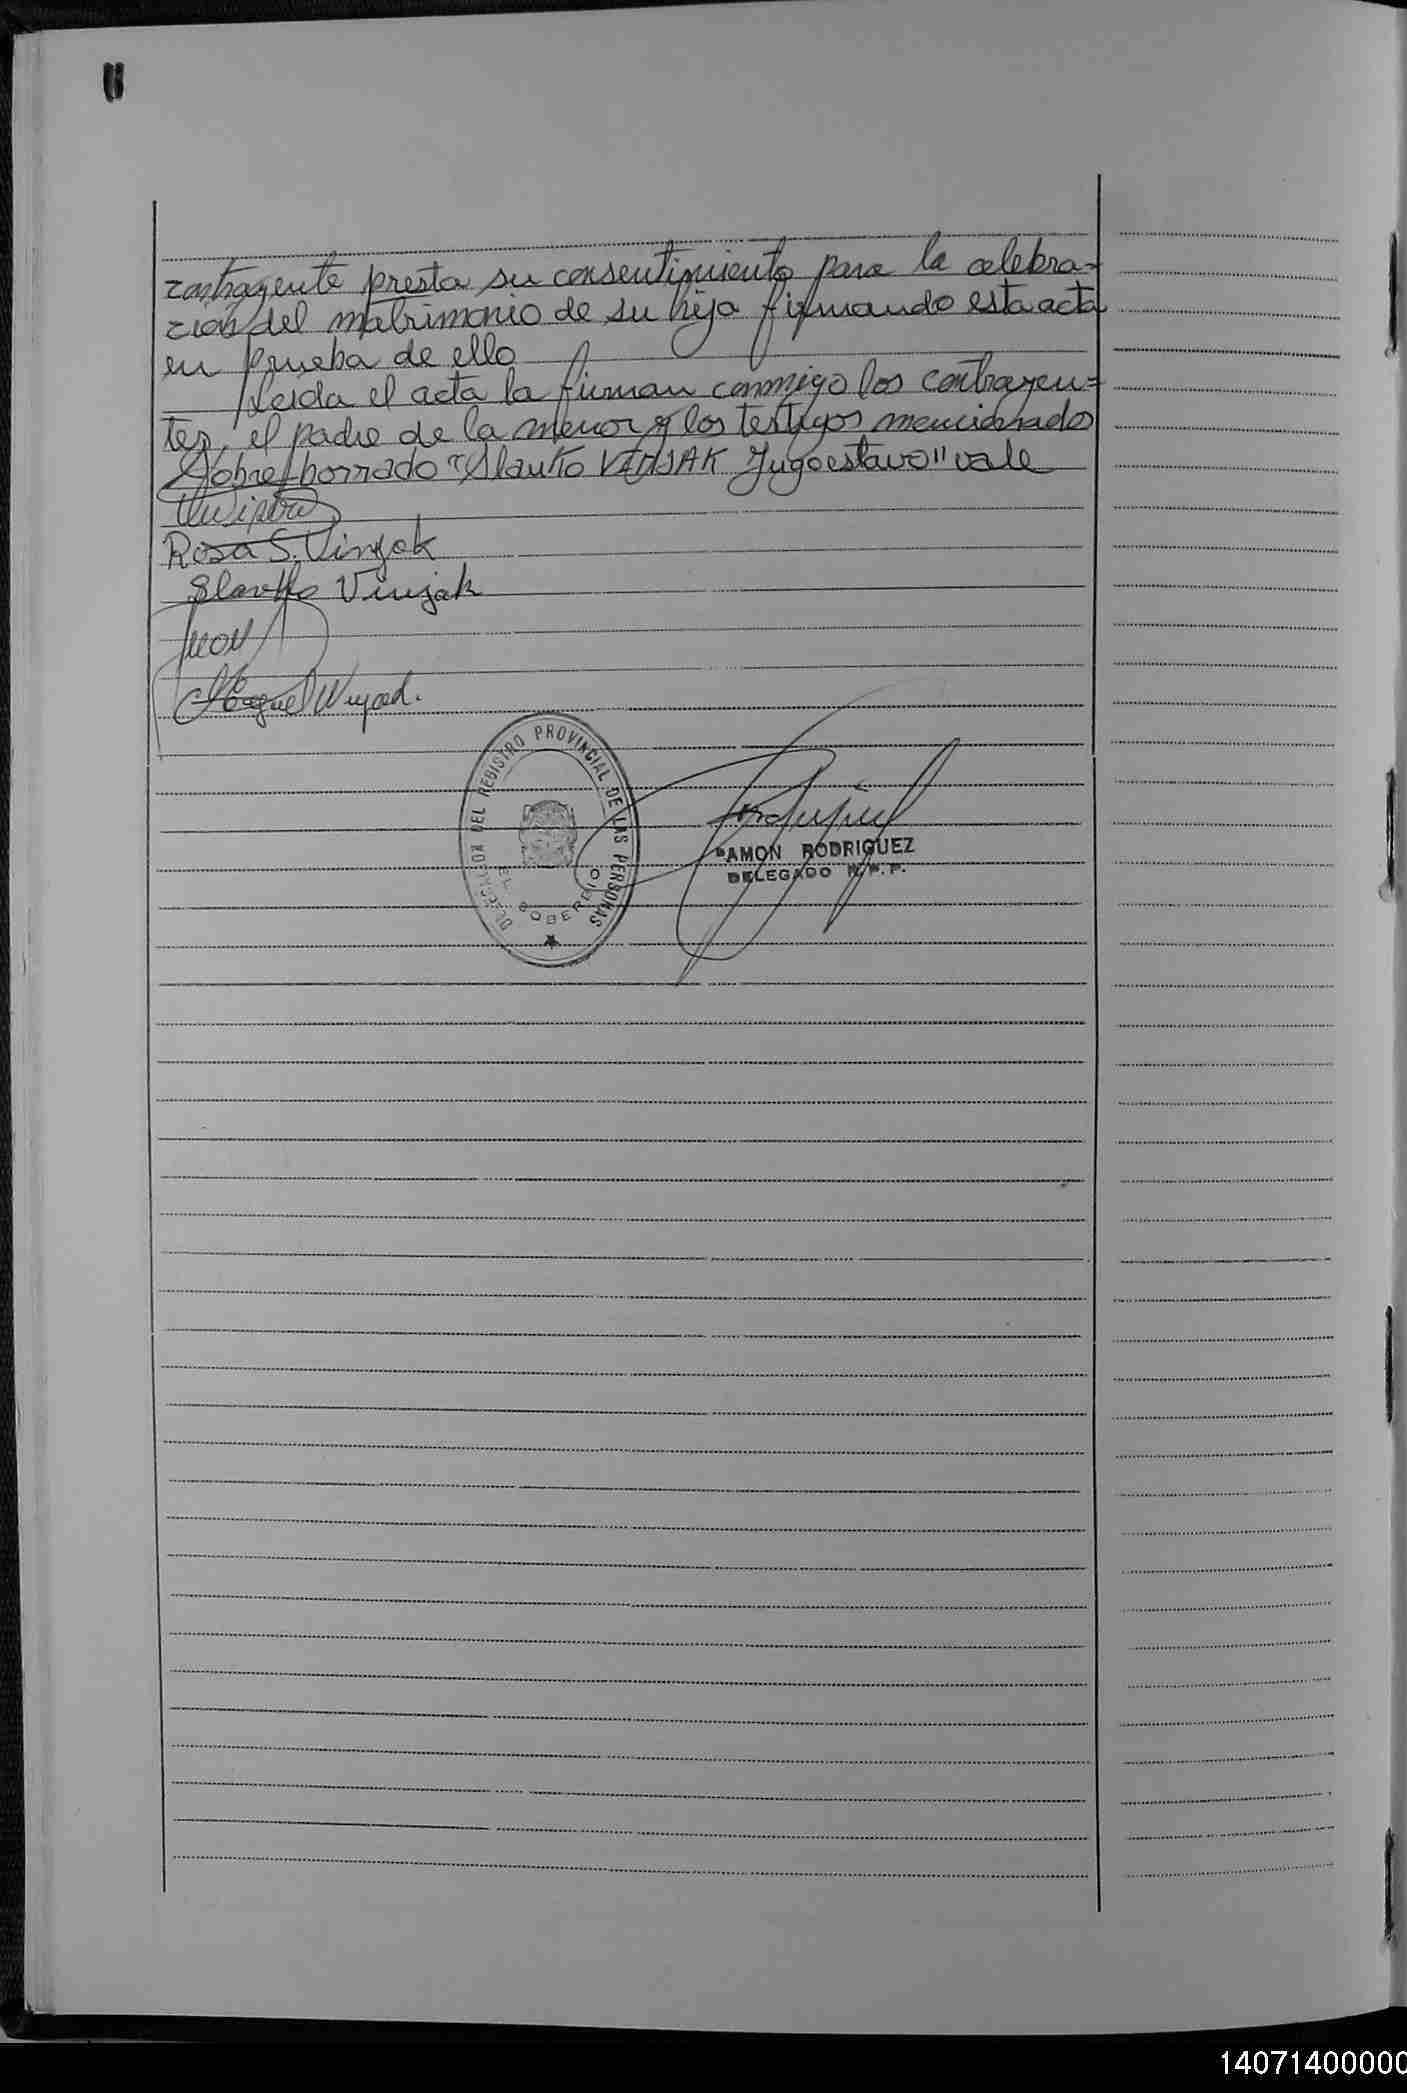 contrayente presta su consentimiento para la celebra-
ción del matrimonio de su hija firmando esta acta
en prueba de ello
Leida el acta la firman conmigo los contrayen-
tes, el padre de la menor y los testigos mencionados
Sobre borrado "Slauko VINJAK Yugoestavo" vale
Rosa S. Vinjak
Slavko Vinjak
Miguel
DELEGACION DEL REGISTRO PROVINCIAL DE LAS PERSONAS
EL SOBERBIO
RAMON RODRIGUEZ
DELEGADO R. P. P.
14071400000